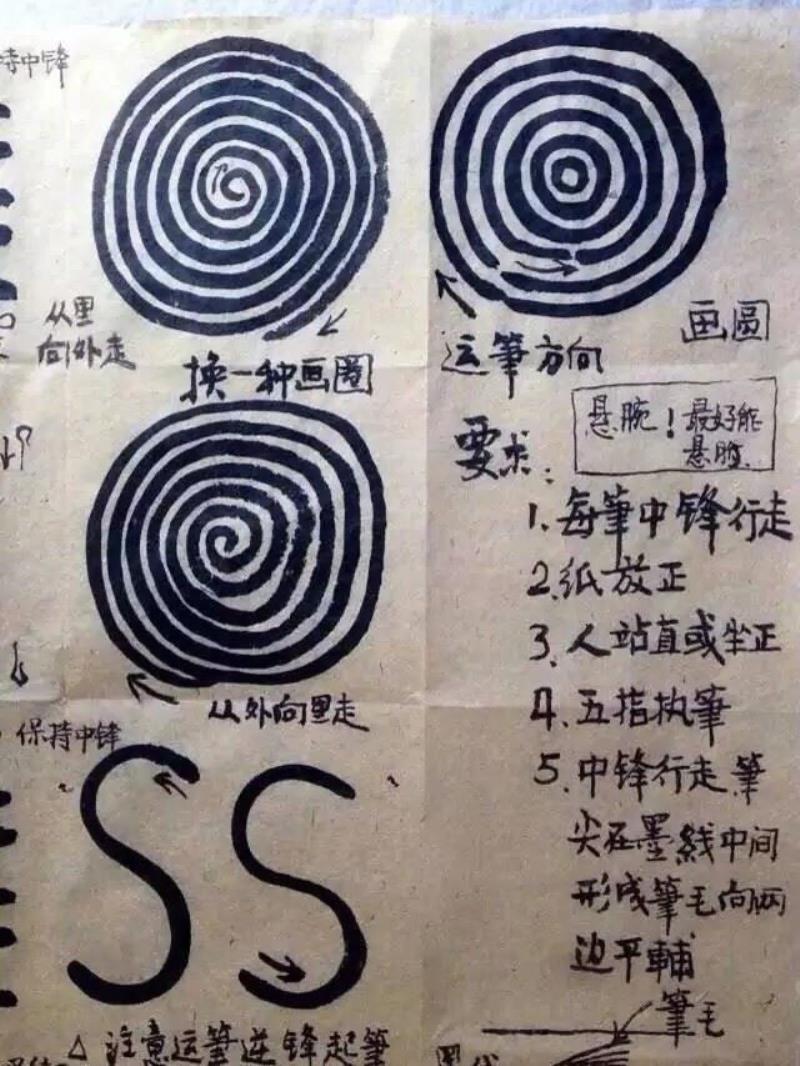 持中锋
从里
向外走
换一种画圈
运筆方向
画圆
悬腕！最好能
悬腕
要求：
1. 每筆中锋行走
2. 纸放正
3. 人站直或坐正
4. 五指执筆
5. 中锋行走筆
尖在墨綫中间
形成筆毛向两
边平輔
筆毛
从外向里走
保持中锋
SS
△ 注意运筆逆锋起筆